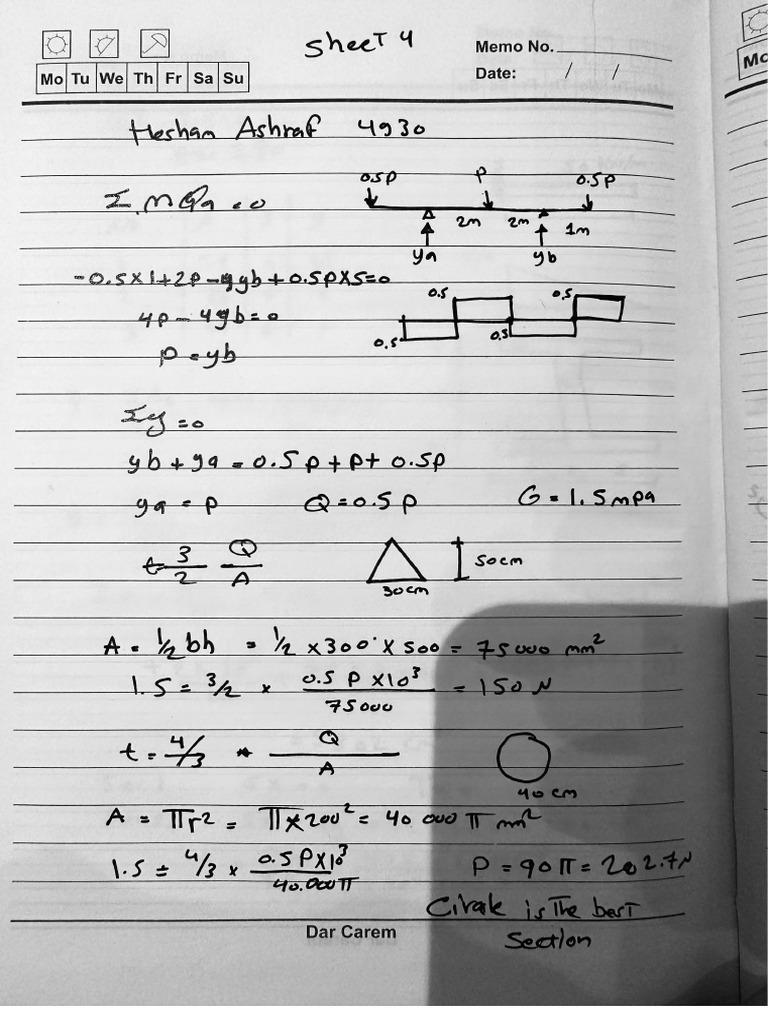 Sheet 4
Memo No.
Mo Tu We Th Fr Sa Su
Date: / /
Mo
Hesham Ashraf 4930
0.5P P 0.5P
Σ M @a = 0
2m 2m 1m
ya yb
-0.5x1+2P-4yb+0.5Px5=0
0.5 0.5
4P-4yb=0
0.5 0.5
P=yb
Σy=0
yb+ya=0.5P+P+0.5P
ya=P Q=0.5P G=1.5mpa
t=3/2 Q/A
50cm
30cm
A=1/2bh =1/2x300x500=75000 mm²
1.5=3/2 x 0.5 P x10³/75000 =150 N
t=4/3 * Q/A
40 cm
A=πr²=πx200²=40 000π mm²
1.5=4/3 x 0.5 Px10³/40.000π P=90π=282.7N
Cirale is The best
Section
Dar Carem